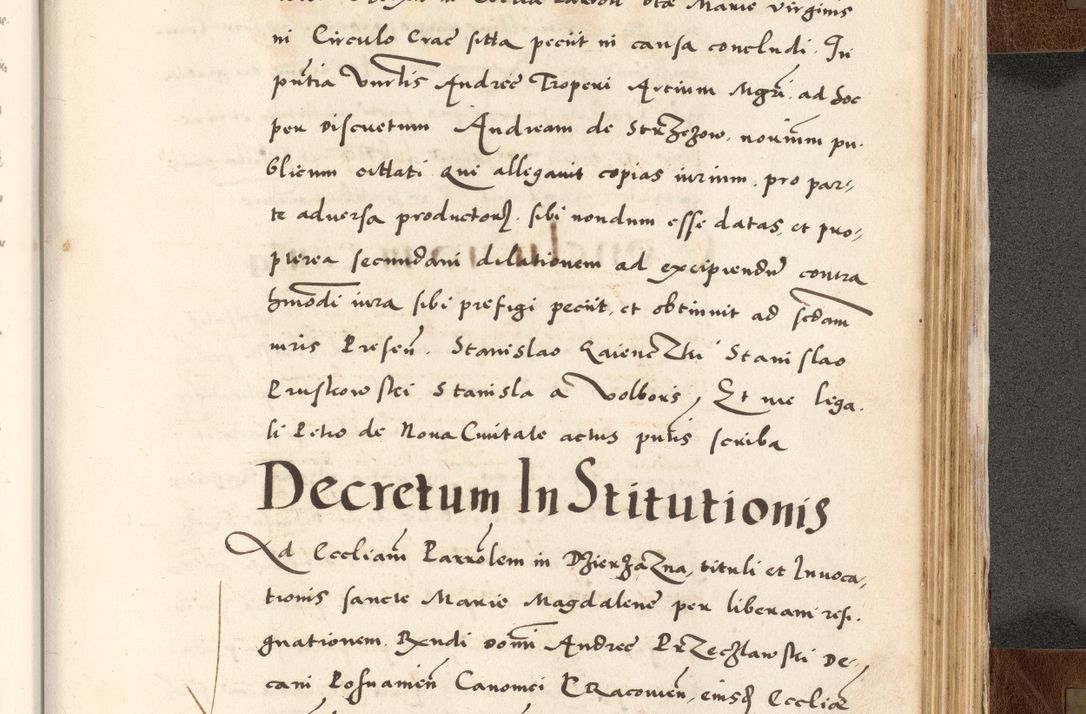 Marie virginis
in Circulo Crac sitta peciit in causa concludi. In
pñtia Vnrlis Andree Troperi Artium Mgri. ad hoc
per Discretum Andream de Strzezow. notarium pu-
blicum cittati qui allegauit copias iurium. pro par-
te aduersa productorꝝ. sibi nondum esse datas, et pro-
pterea secundam dilationem ad excipiendū contra
hmōdi iura sibi prefigi peciit, et obtinuit ad sc̄dam
iuris Presen̄. Stanislao Stanislao
Pruskowski Stanisla a Volbors, Et me lega-
li Petro de Noua Ciuitate actus pn̄tis scriba
Decretum InStitutionis
Ad Eccliam̄ Parrōlem in DzierzaZna, tituli et Inuoca-
tionis sancte Marie Magdalene per liberam resi-
gnationem. Rxndi domi Andree PrZeczlawski De-
cani Posnanien̄ Canonici CRacouien̄, eiusdꝫ Eccliæ